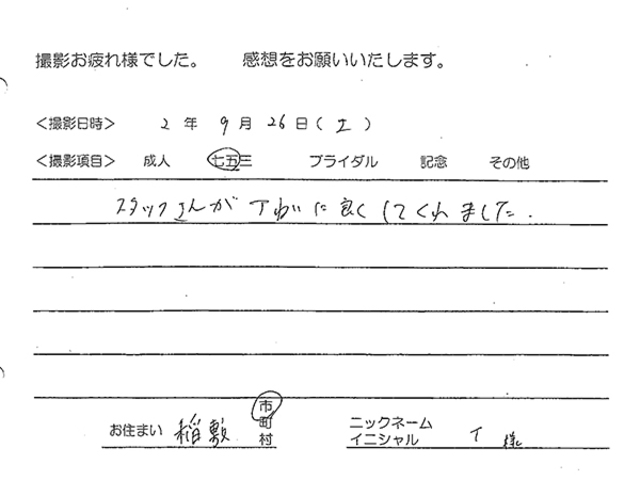 撮影お疲れ様でした。 感想をお願いいたします。
<撮影日時> 2 年 9 月 26 日 ( 土 )
<撮影項目> 成人 七五三 ブライダル 記念 その他
スタッフさんが とても に良くしてくれました.
お住まい 稲敷 市 町 村
ニックネーム
イニシャル T 様